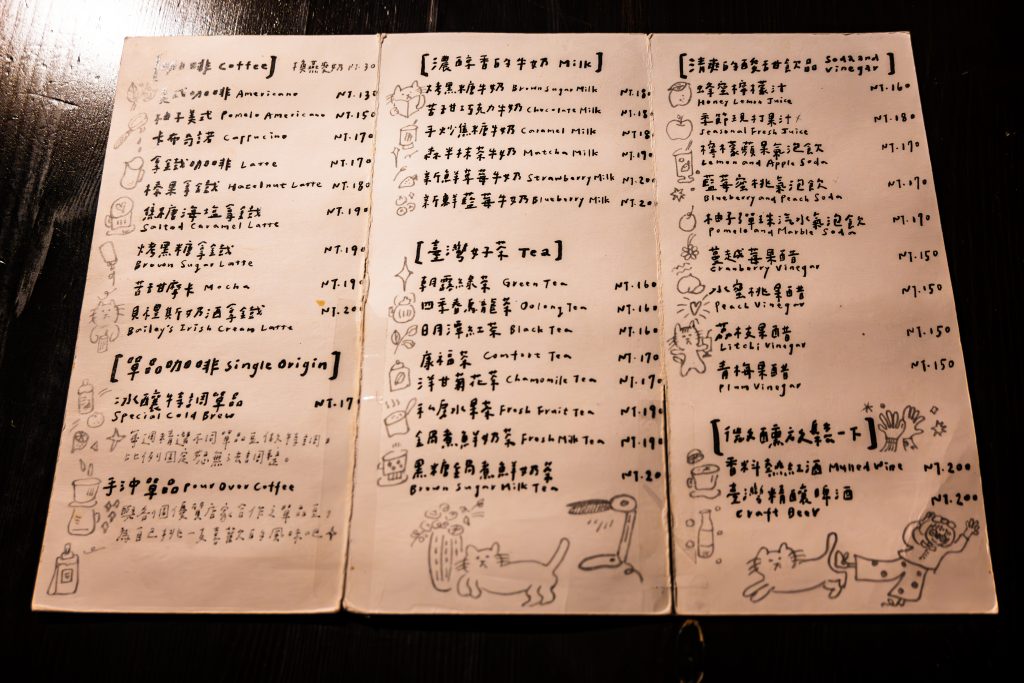 [咖啡 Coffee] 換燕麥奶 +30
美式咖啡 Americano NT.130
柚子美式 Pomelo Americano NT.150
卡布奇諾 Cappucino NT.170
拿鐵咖啡 Latte NT.170
榛果拿鐵 Hazelnut Latte NT.180
焦糖海塩拿鐵 NT.190
Salted Caramel Latte
烤黑糖拿鐵 NT.190
Brown Sugar Latte
苦甜摩卡 Mocha NT.190
貝禮斯奶酒拿鐵 NT.200
Bailey's Irish Cream Latte
[單品咖啡 Single Origin]
冰釀特調單品 NT.17
Special Cold Brew
每週精選不同單品豆做特調。
比例固定恕無法調整。
手沖單品 Pour Over Coffee
優質店家合作之單品豆，
為自己挑一支喜歡的風味吧
[濃醇香的牛奶 Milk]
烤黑糖牛奶 Brown Sugar Milk NT.18
苦甜巧克力牛奶 Chocolate Milk NT.18
手炒焦糖牛奶 Caramel Milk NT.18
森半抹茶牛奶 Matcha Milk NT.190
新鮮草莓牛奶 Strawberry Milk NT.20
新鮮藍莓牛奶 Blueberry Milk NT.20
[臺灣好茶 Tea]
朝露綠茶 Green Tea NT.160
四季春烏龍茶 Oolong Tea NT.160
日月潭紅茶 Black Tea NT.160
康福茶 Comfort Tea NT.170
洋甘菊花茶 Chamomile Tea NT.170
手作水果茶 Fresh Fruit Tea NT.190
全局煮鮮奶茶 Fresh Milk Tea NT.190
黑糖全局煮鮮奶茶 NT.20
Brown Sugar Milk Tea
[清爽的酸甜飲品 Soda and Vinegar]
蜂蜜檸檬汁 NT.160
Honey Lemon Juice
季節現打果汁 NT.180
Seasonal Fresh Juice
檸檬蘋果氣泡飲 NT.170
Lemon and Apple Soda
藍莓蜜桃氣泡飲 NT.170
Blueberry and Peach Soda
柚子彈珠汽水氣泡飲 NT.190
Pomelo and Marble Soda
蔓越莓果醋 NT.150
Cranberry Vinegar
水蜜桃果醋 NT.150
Peach Vinegar
荔枝果醋 NT.150
Litchi Vinegar
青梅果醋 NT.150
Plum Vinegar
[微醺放鬆一下]
香料熱紅酒 Mulled Wine NT.200
臺灣精釀啤酒 NT.200
Craft Beer